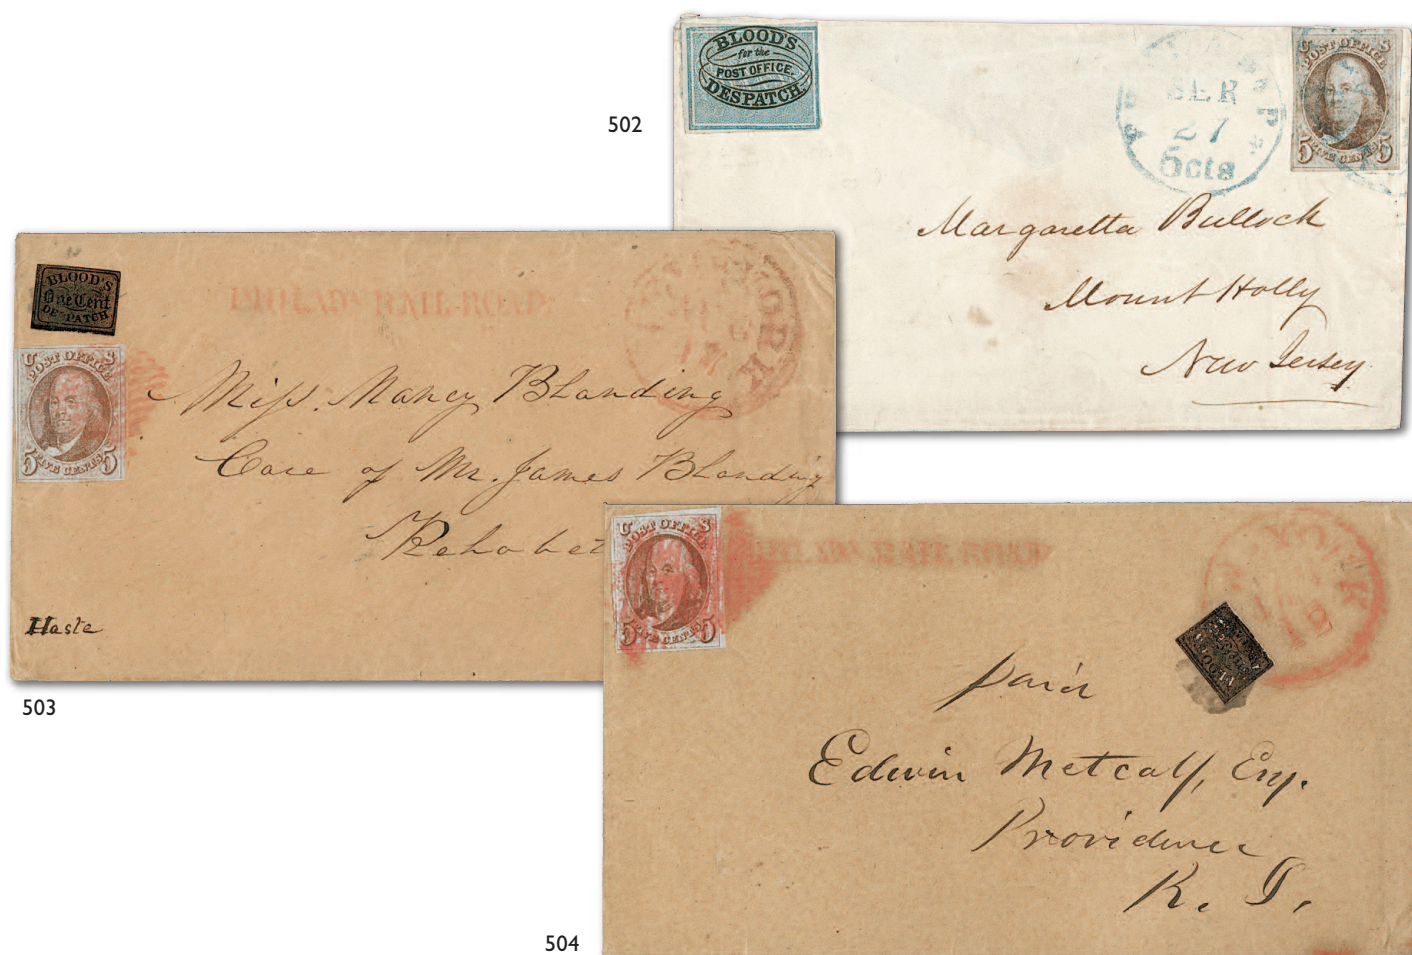 502
BLOOD'S
for the
POST OFFICE.
DESPATCH.
SEP
27
5cts
U S
POST OFFICE
5 FIVE CENTS 5
Margaretta Bullock
Mount Holly
New Jersey
BLOOD'S
One Cent
DESPATCH
PHILADA RAIL-ROAD.
NEW YORK
U S
POST OFFICE
5 FIVE CENTS 5
Miss. Nancy Blanding
Care of Mr. James Blanding
Haste
503
U S
POST OFFICE
5 FIVE CENTS 5
RAIL ROAD
YORK
12
paid
Edwin Metcalf, Esq.
Providence
R. I.
504